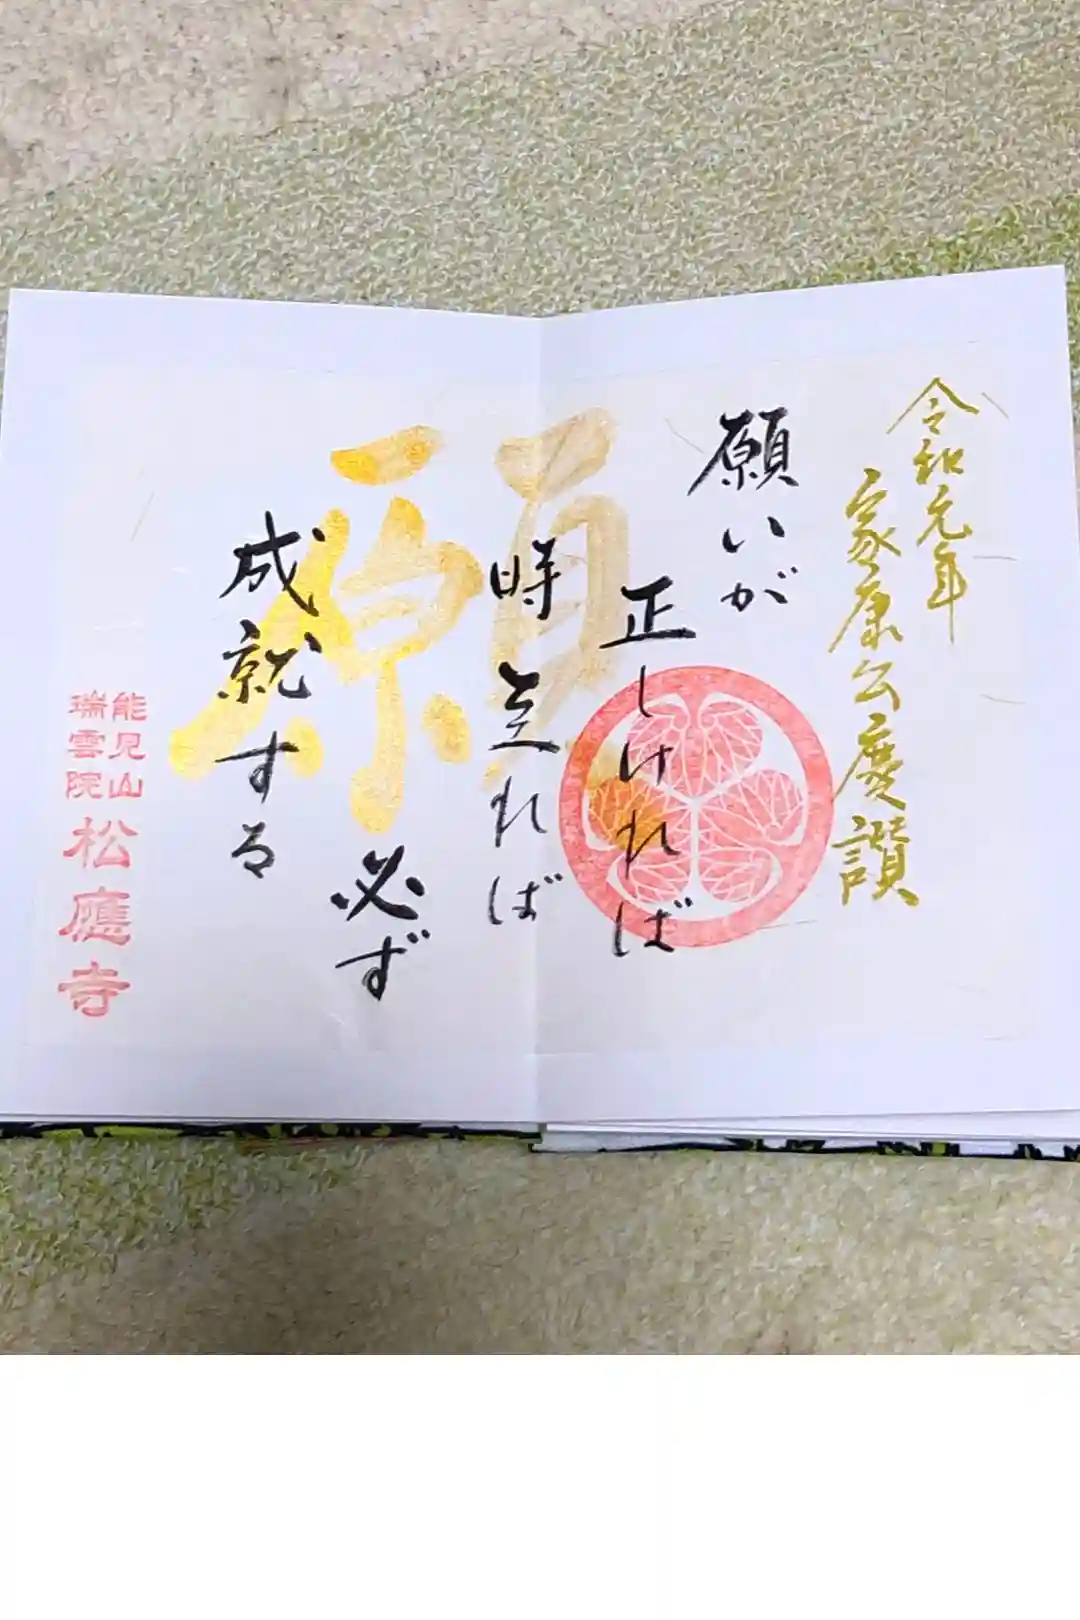 令和元年
家康公慶讃
願いが
正しければ
時至れば
必ず
成就する
願
能見山
瑞雲院
松應寺